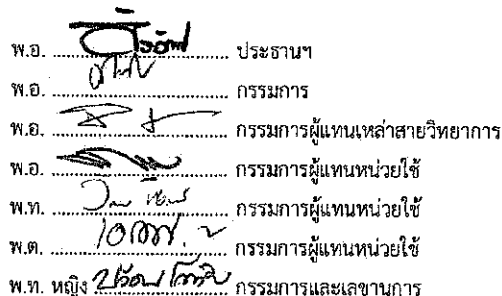 พ.อ. ประธานฯ
พ.อ. กรรมการ
พ.อ. กรรมการผู้แทนเหล่าสายวิทยาการ
พ.อ. กรรมการผู้แทนหน่วยใช้
พ.ท. กรรมการผู้แทนหน่วยใช้
พ.ต. กรรมการผู้แทนหน่วยใช้
พ.ท. หญิง กรรมการและเลขานุการ